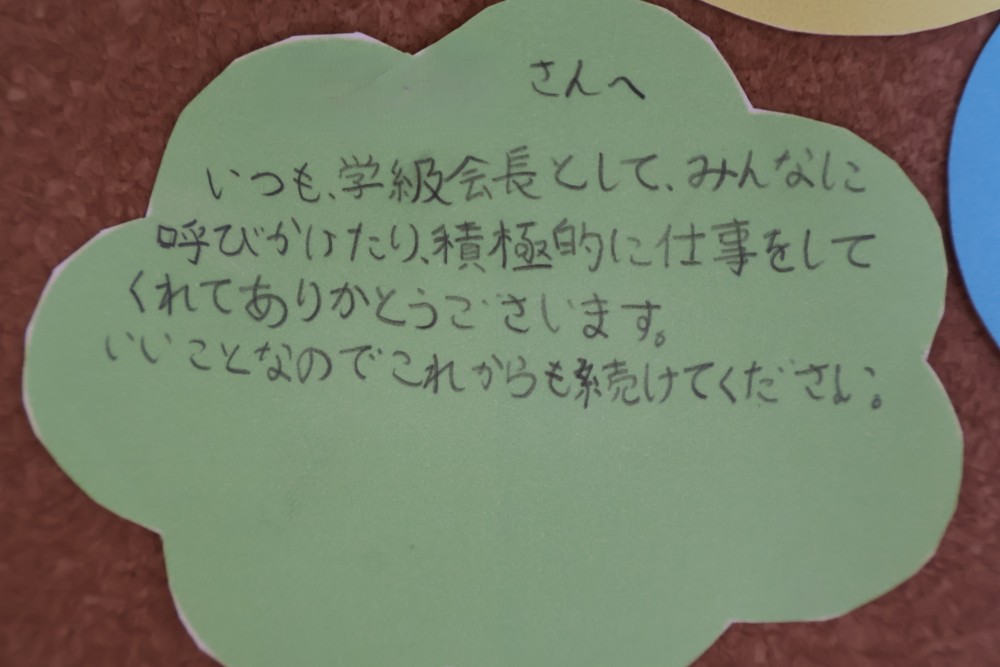 さんへ
いつも、学級会長として、みんなに
呼びかけたり、積極的に仕事をして
くれてありがとうございます。
いいことなのでこれからも続けてください。